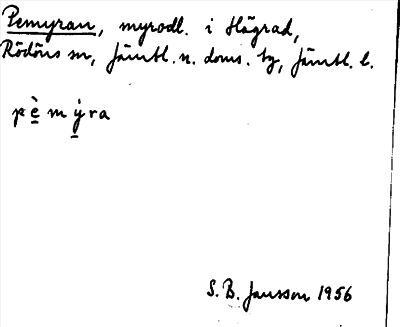 Pemyran, myrodl. i Högrad,
Rödöns sn, Jämtl. n. doms. tg, Jämtl. l.
pè̱mý̱ra
S. B. Jansson 1956